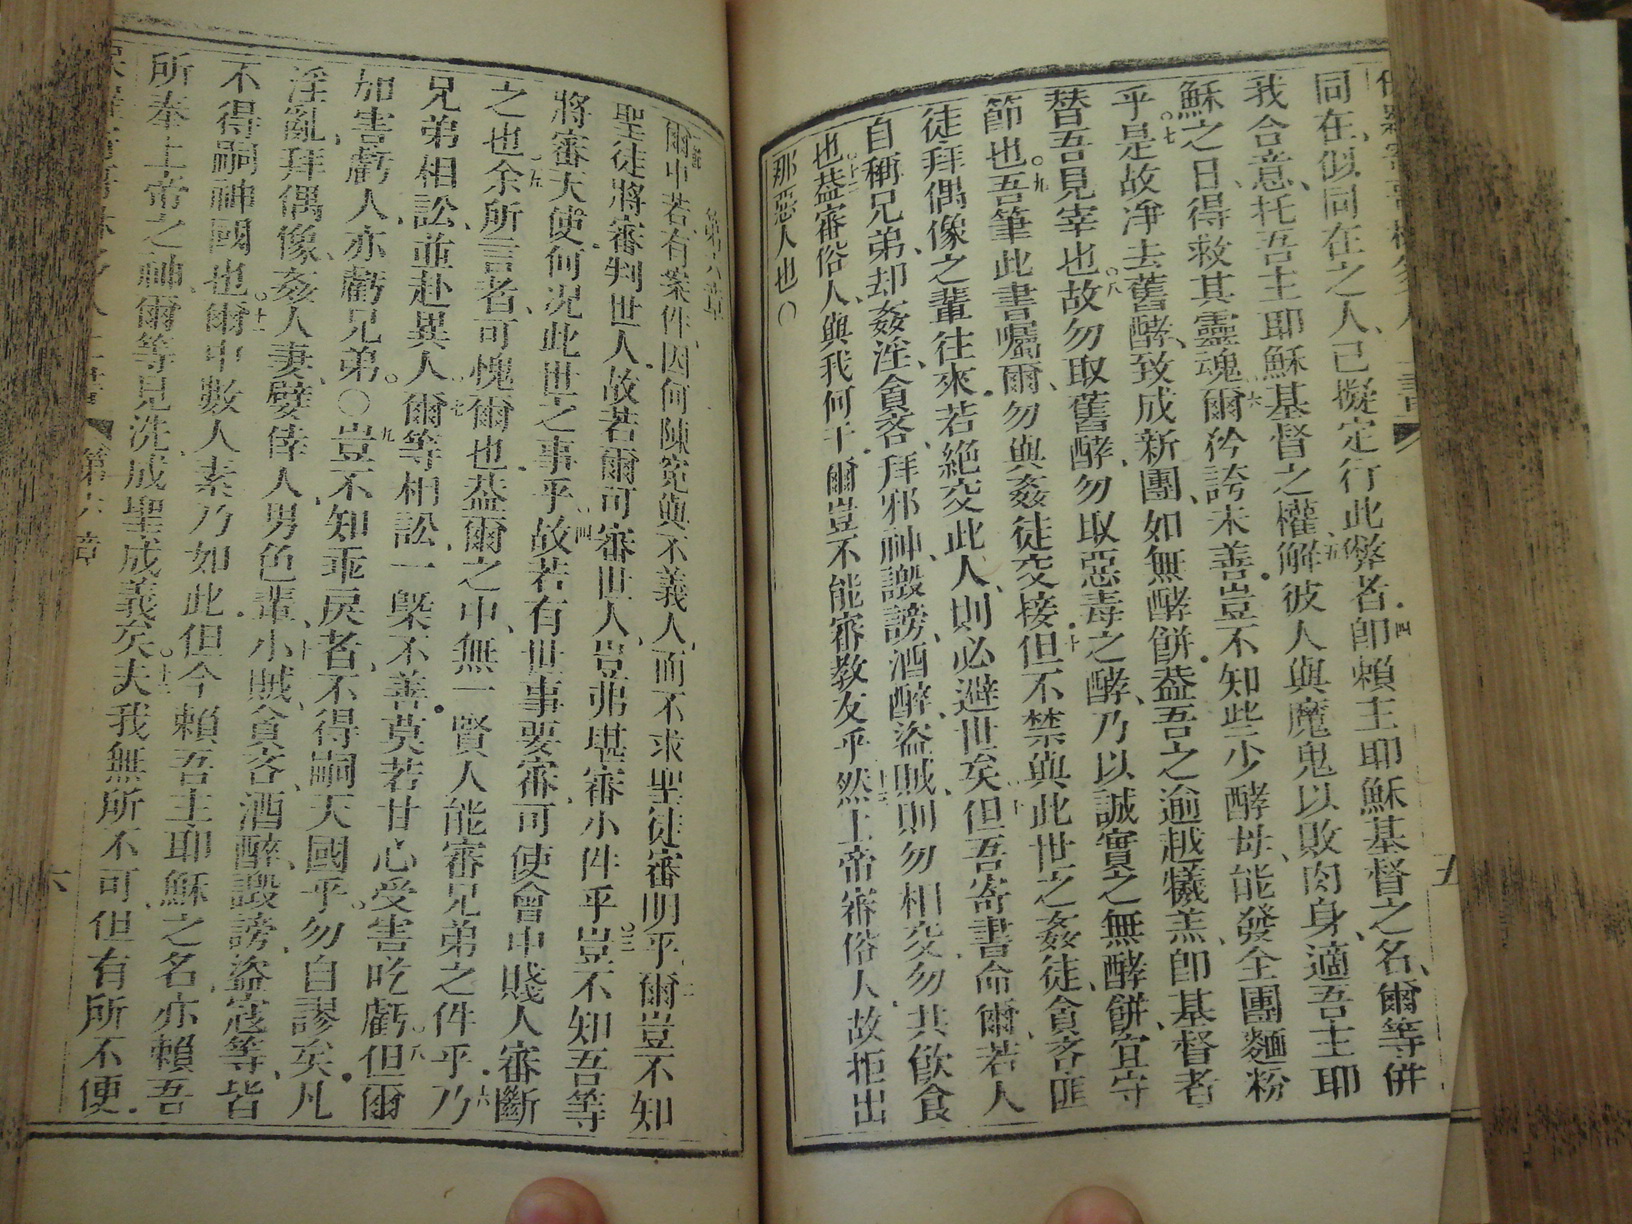 同在、似同在之人、已擬定行此弊者．四即賴主耶穌基督之名、爾等併
我合意、托吾主耶穌基督之權、五解彼人與魔鬼以敗肉身、適吾主耶
穌之日、得救其靈魂、六爾矜誇未善．豈不知些少酵母、能發全團麵粉
乎。七是故凈去舊酵、致成新團、如無酵餅．葢吾之逾越犧羔、即基督者
替吾見宰也。八故勿取舊酵．勿取惡毒之酵、乃以誠實之無酵餅、宜守
節也。九吾筆此書囑爾、勿與姦徒交接．十但不禁與此世之姦徒、貪吝匪
徒、拜偶像之輩往來．若絶交此人、則必避世矣、十一但吾寄書命爾、若人
自稱兄弟、却姦淫、貪吝、拜邪神、譭謗、酒醉、盜賊、則勿相交．勿共飲食
也。十二葢審俗人、與我何干．爾豈不能審教友乎．十三然上帝審俗人．故拒出
那惡人也〇
第六章
爾中若有案件、因何陳寃與不義人、而不求聖徒審明乎、二爾豈不知
聖徒將審判世人．故若爾可審世人、豈弗堪審小件乎。三豈不知吾等
將審天使．何況此世之事乎．四故若有世事要審、可使會中賤人審斷
之也。五余所言者、可愧爾也．葢爾之中、無一賢人能審兄弟之件乎．六乃
兄弟相訟、並赴異人．七爾等相訟、一槩不善．莫若甘心受害吃虧。八但爾
加害虧人、亦虧兄弟。〇九豈不知乖戾者、不得嗣天國乎。勿自謬矣．凡
淫亂、拜偶像、姦人妻、嬖倖人、男色輩、十小賊、貪吝、酒醉、譭謗、盜寇等、皆
不得嗣神國也。十一爾中數人素乃如此．但今賴吾主耶穌之名、亦賴吾
所奉上帝之神、爾等見洗、成聖、成義矣。十二夫我無所不可、但有所不便．
第六章
六
五